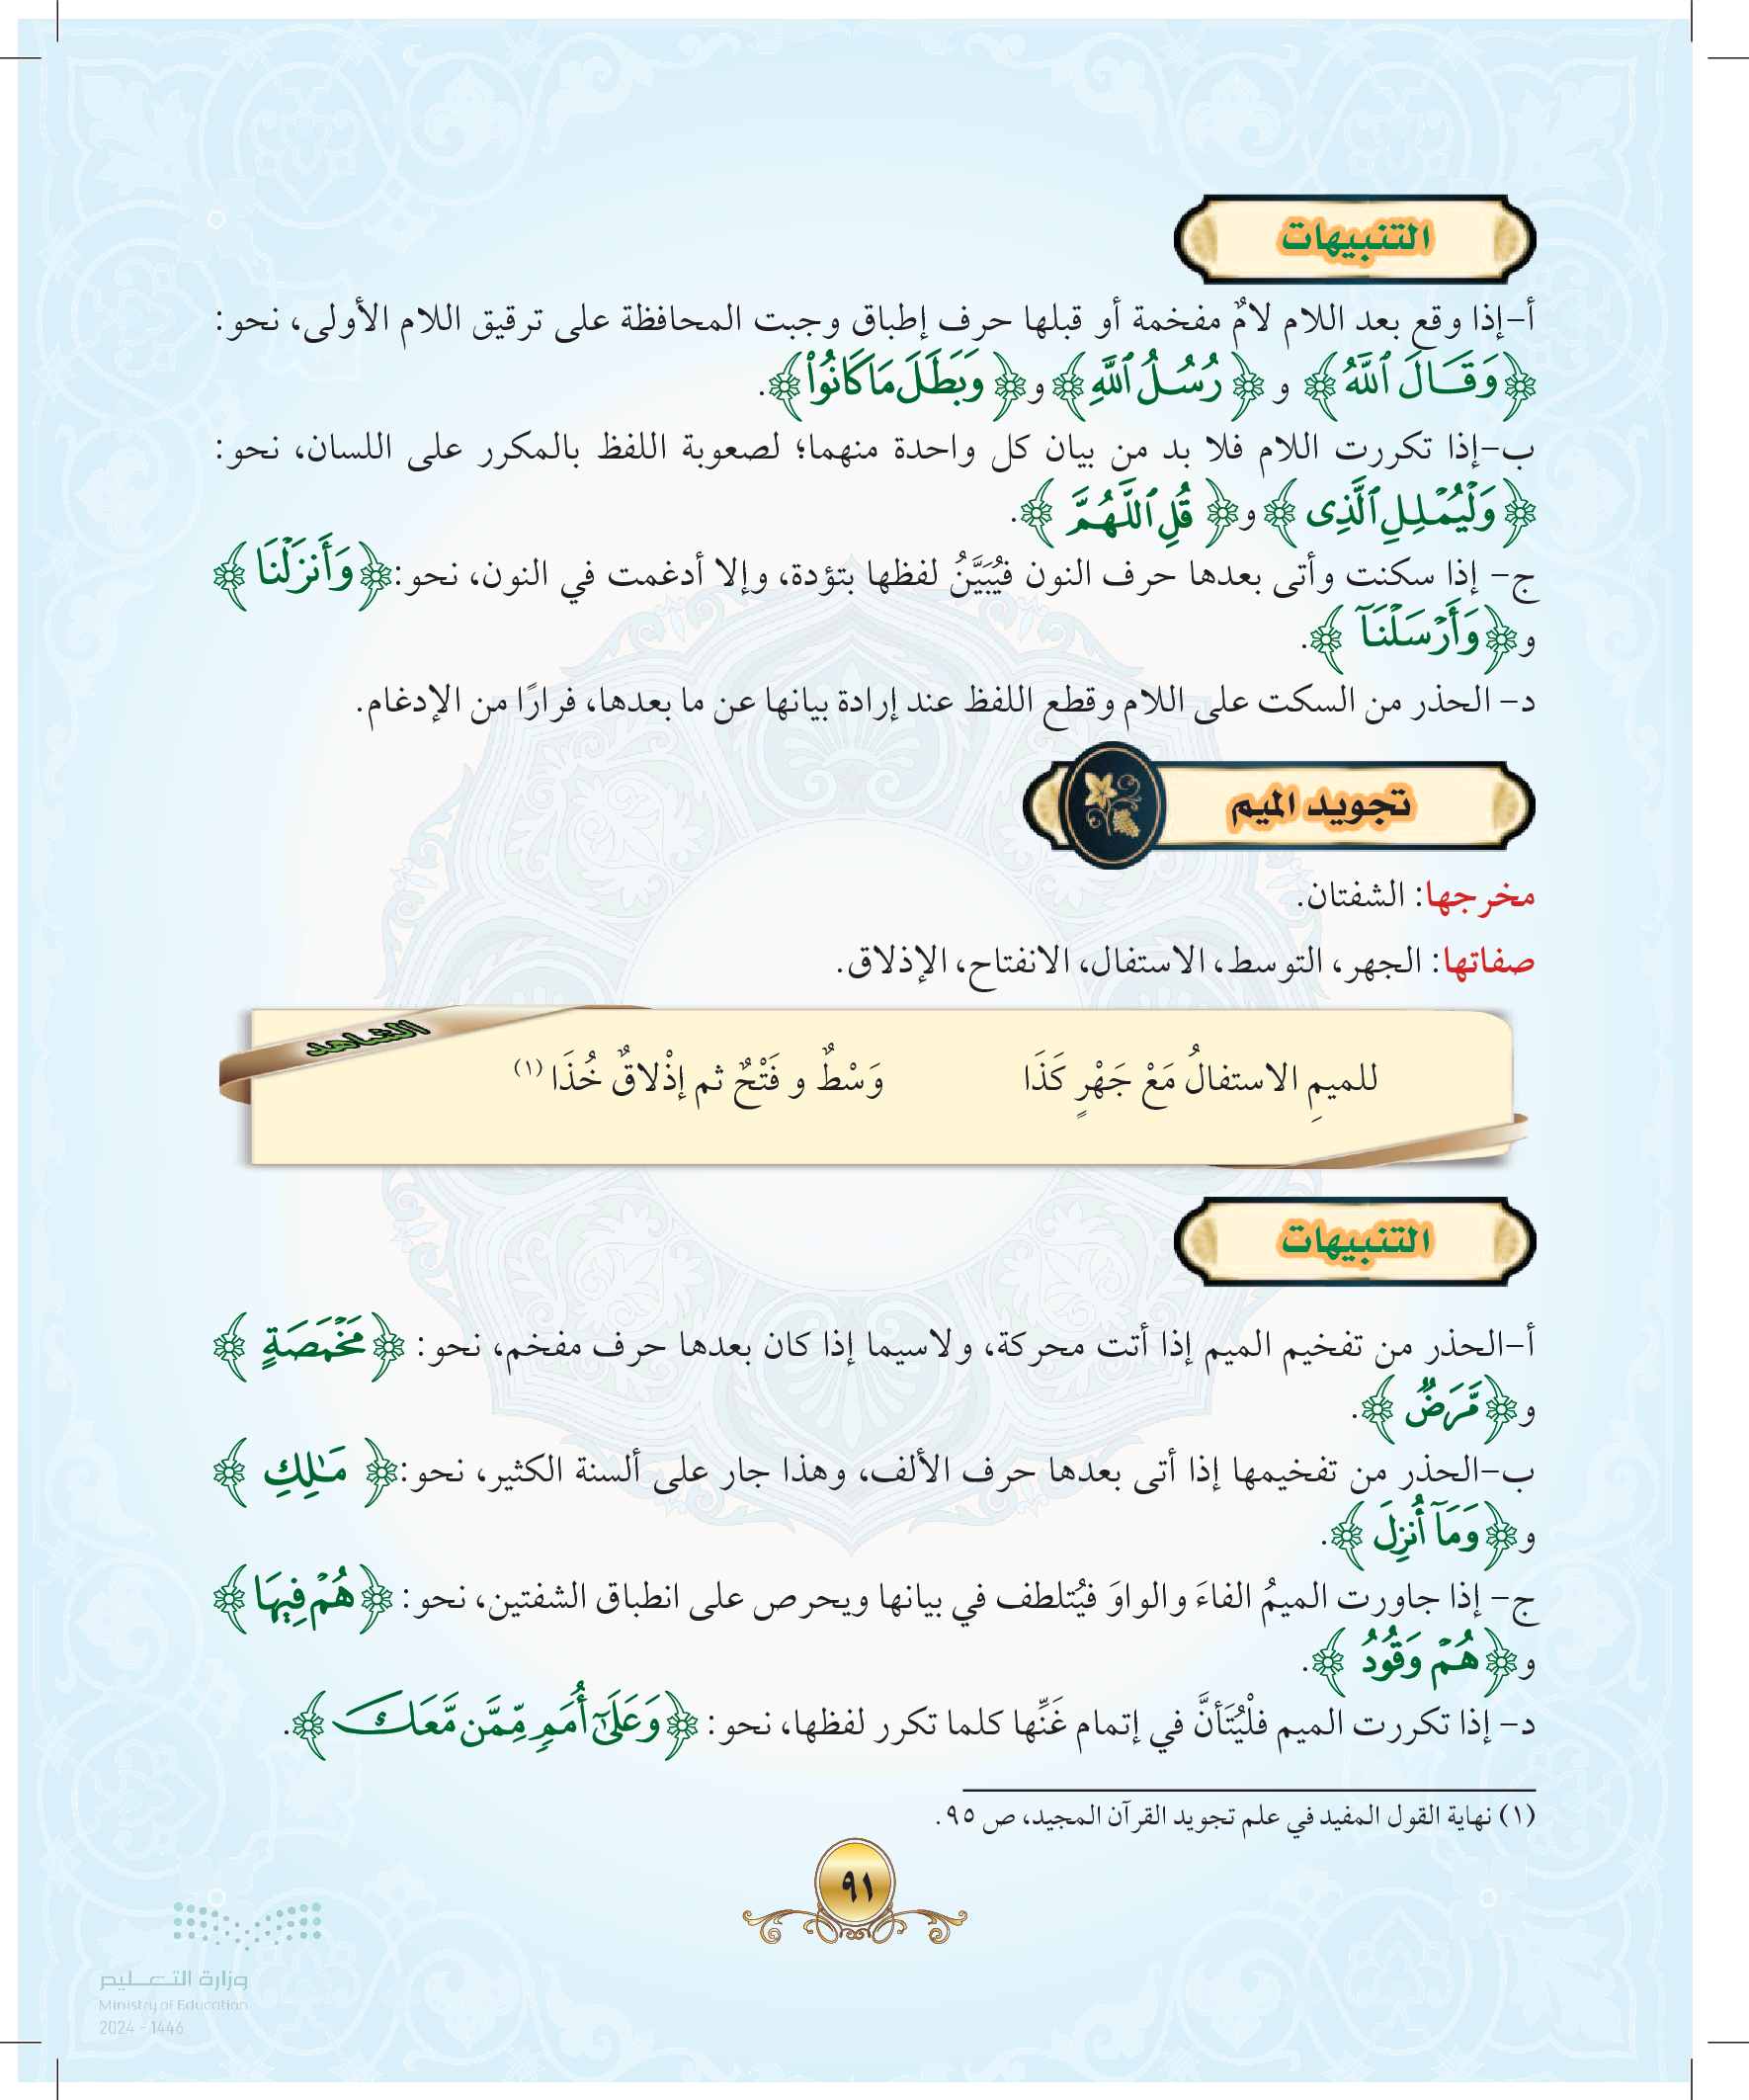 التنبيهات
أ-إذا وقع بعد اللام لامٌ مفخمة أو قبلها حرف إطباق وجبت المحافظة على ترقيق اللام الأولى، نحو:
﴿وَقَالَ ٱللَّهُ﴾ و ﴿رُسُلُ ٱللَّهِ﴾ و﴿وَبَطَلَ مَا كَانُوا۟﴾.
ب-إذا تكررت اللام فلا بد من بيان كل واحدة منهما؛ لصعوبة اللفظ بالمكرر على اللسان، نحو:
﴿وَلْيُمْلِلِ ٱلَّذِى﴾ و﴿قُلِ ٱللَّهُمَّ﴾.
ج- إذا سكنت وأتى بعدها حرف النون فيُبَيَّنُ لفظها بتؤدة، وإلا أدغمت في النون، نحو:﴿وَأَنزَلْنَا﴾
و﴿وَأَرْسَلْنَآ﴾.
د- الحذر من السكت على اللام وقطع اللفظ عند إرادة بيانها عن ما بعدها، فرارًا من الإدغام.
تجويد الميم
مخرجها: الشفتان.
صفاتها: الجهر، التوسط، الاستفال، الانفتاح، الإذلاق.
الشاهد
للميمِ الاستفالُ مَعْ جَهْرٍ كَذَا وَسْطٌ و فَتْحٌ ثم إذْلاقٌ خُذَا (١)
التنبيهات
أ-الحذر من تفخيم الميم إذا أتت محركة، ولاسيما إذا كان بعدها حرف مفخم، نحو: ﴿مَخْمَصَةٍ﴾
و﴿مَّرَضٌ﴾.
ب-الحذر من تفخيمها إذا أتى بعدها حرف الألف، وهذا جار على ألسنة الكثير، نحو:﴿مَٰلِكِ﴾
و﴿وَمَآ أُنزِلَ﴾.
ج- إذا جاورت الميمُ الفاءَ والواوَ فيُتلطف في بيانها ويحرص على انطباق الشفتين، نحو: ﴿هُمْ فِيهَا﴾
و﴿هُمْ وَقُودُ﴾.
د- إذا تكررت الميم فلْيُتَأنَّ في إتمام غَنِّها كلما تكرر لفظها، نحو: ﴿وَعَلَىٰٓ أُمَمٍ مِّمَّن مَّعَكَ﴾.
(١) نهاية القول المفيد في علم تجويد القرآن المجيد، ص ٩٥.
٩١
وزارة التعليم
Ministry of Education
2024 - 1446